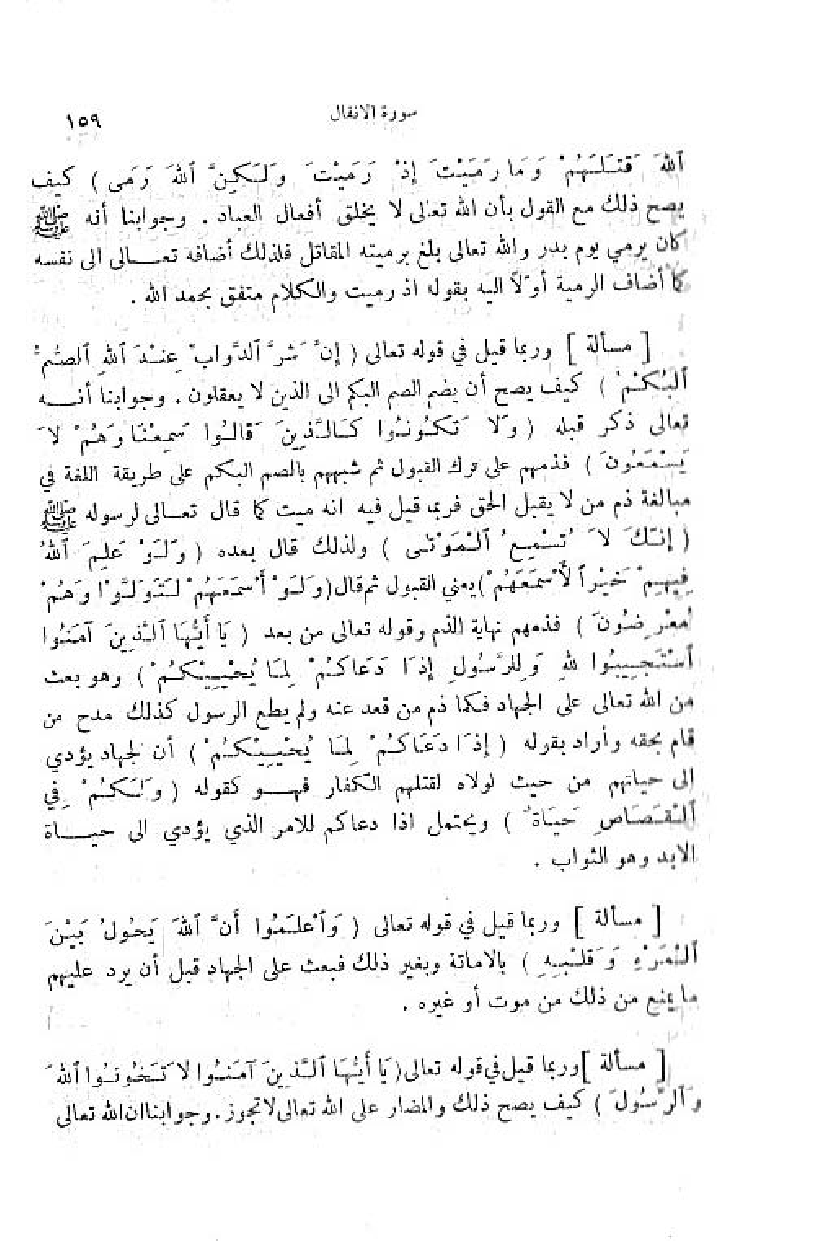 سورة الانفال
١٥٩
ٱللهَ قَتَلَهُمْ وَمَا رَمَيْتَ إِذْ رَمَيْتَ وَلَكِنَّ ٱللهَ رَمَى ) كيف
يصح ذلك مع القول بأن الله تعالى لا يخلق أفعال العباد . وجوابنا أنه ﷺ
كان يرمي يوم بدر والله تعالى بلغ برميته المقاتل فلذلك أضافه تعـــالى الى نفسه
كما أضاف الرمية أولاً اليه بقوله اذ رميت والكلام متفق بحمد الله .
[ مسألة ] وربما قيل في قوله تعالى ( إِنَّ شَرَّ ٱلدَّوَابِّ عِنْدَ ٱللهِ ٱلصُّمُّ
ٱلْبُكْمُ ) كيف يصح أن يضم الصم البكم الى الذين لا يعقلون . وجوابنا أنـــه
تعالى ذكر قبله ( وَلَا تَكُونُوا كَالَّذِينَ قَالُوا سَمِعْنَا وَهُمْ لَا
يَسْمَعُونَ ) فذمهم على ترك القبول ثم شبههم بالصم البكم على طريقة اللغة في
مبالغة ذم من لا يقبل الحق فربما قيل فيه انه ميت كما قال تعـالى لرسوله ﷺ
( إِنَّكَ لَا تُسْمِعُ ٱلْمَوْتَى ) ولذلك قال بعده ( وَلَوْ عَلِمَ ٱللهُ
فِيهِمْ خَيْراً لَأَسْمَعَهُمْ ) يعني القبول ثم قال ( وَلَوْ أَسْمَعَهُمْ لَتَوَلَّوْا وَهُمْ
مُعْرِضُونَ ) فذمهم نهاية الذم وقوله تعالى من بعد ( يَا أَيُّهَا ٱلَّذِينَ آمَنُوا
ٱسْتَجِيبُوا للهِ وَلِلرَّسُولِ إِذَا دَعَاكُمْ لِمَا يُحْيِيكُمْ ) وهو بعث
من الله تعالى على الجهاد فكما ذم من قعد عنه ولم يطع الرسول كذلك مدح من
قام بحقه وأراد بقوله ( إِذَا دَعَاكُمْ لِمَا يُحْيِيكُمْ ) أن لجهاد يؤدي
إلى حياتهم من حيث لولاه لقتلهم الكفار فهـــو كقوله ( وَلَكُمْ فِي
ٱلْقِصَاصِ حَيَاةٌ ) ويحتمل اذا دعاكم للامر الذي يؤدي الى حيـــاة
الابد وهو الثواب .
[ مسألة ] وربما قيل في قوله تعالى ( وَٱعْلَمُوا أَنَّ ٱللهَ يَحُولُ بَيْنَ
ٱلْمَرْءِ وَقَلْبِهِ ) بالاماتة وبغير ذلك فبعث على الجهاد قبل أن يرد عليهم
ما يمنع من ذلك من موت أو غيره .
[ مسألة ] وربما قيل في قوله تعالى ( يَا أَيُّهَا ٱلَّذِينَ آمَنُوا لَا تَخُونُوا ٱللهَ
وَٱلرَّسُولَ ) كيف يصح ذلك والمضار على الله تعالى لا تجوز . وجوابنا ان الله تعالى